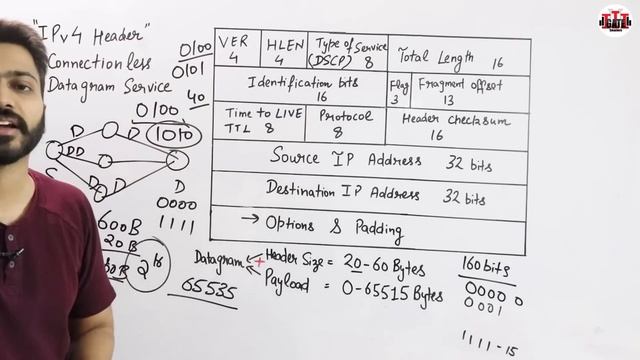 "IPv4 Header"
Connectionless
Datagram Service
0100
0101
40
0100
1010
D
D
DD
D
D
S
D
0000
1111
600B
20B
80B
2^16
65535
VER
4
HLEN
4
Type of Service
(DSCP) 8
Total Length 16
Identification bits
16
Flag
3
Fragment offset
13
Time to LIVE
TTL 8
Protocol
8
Header checksum
16
Source IP Address 32 bits
Destination IP Address 32 bits
→ Options & Padding
Datagram
Header Size = 20-60 Bytes
+
Payload = 0-65515 Bytes
160 bits
0000 0
0001
1111 - 15
GATE